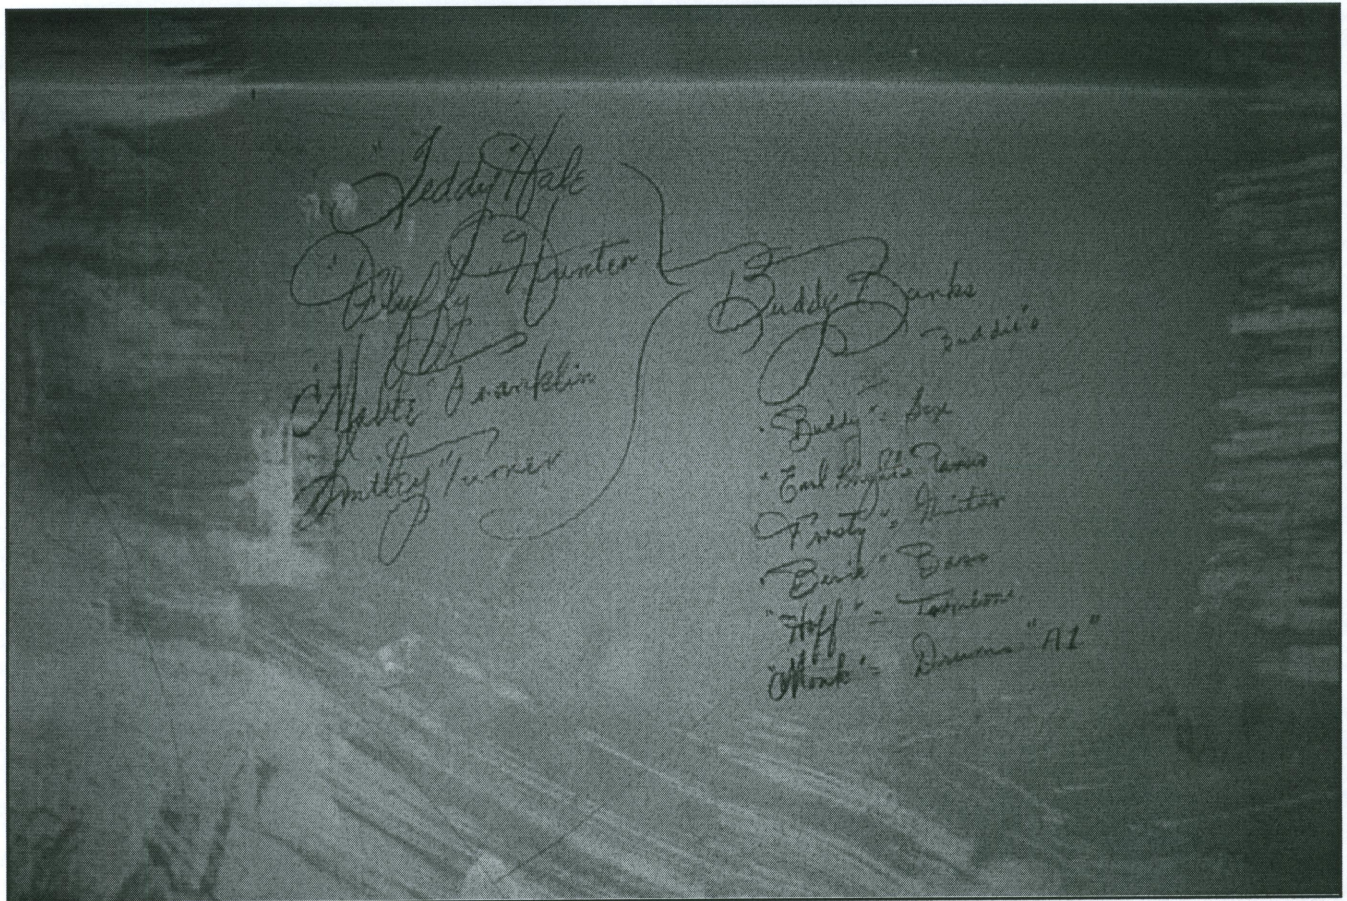 "Teddy" Hale
"Fluffy" Hunter
"Mable" Franklin
"Smitty" Turner
Buddy Banks
Buddie's
"Buddy" = Sax
"Earl Knight" = Piano
"Frosty" =
"Bass
"Hoff" =
"Monk" = Drums "A1"